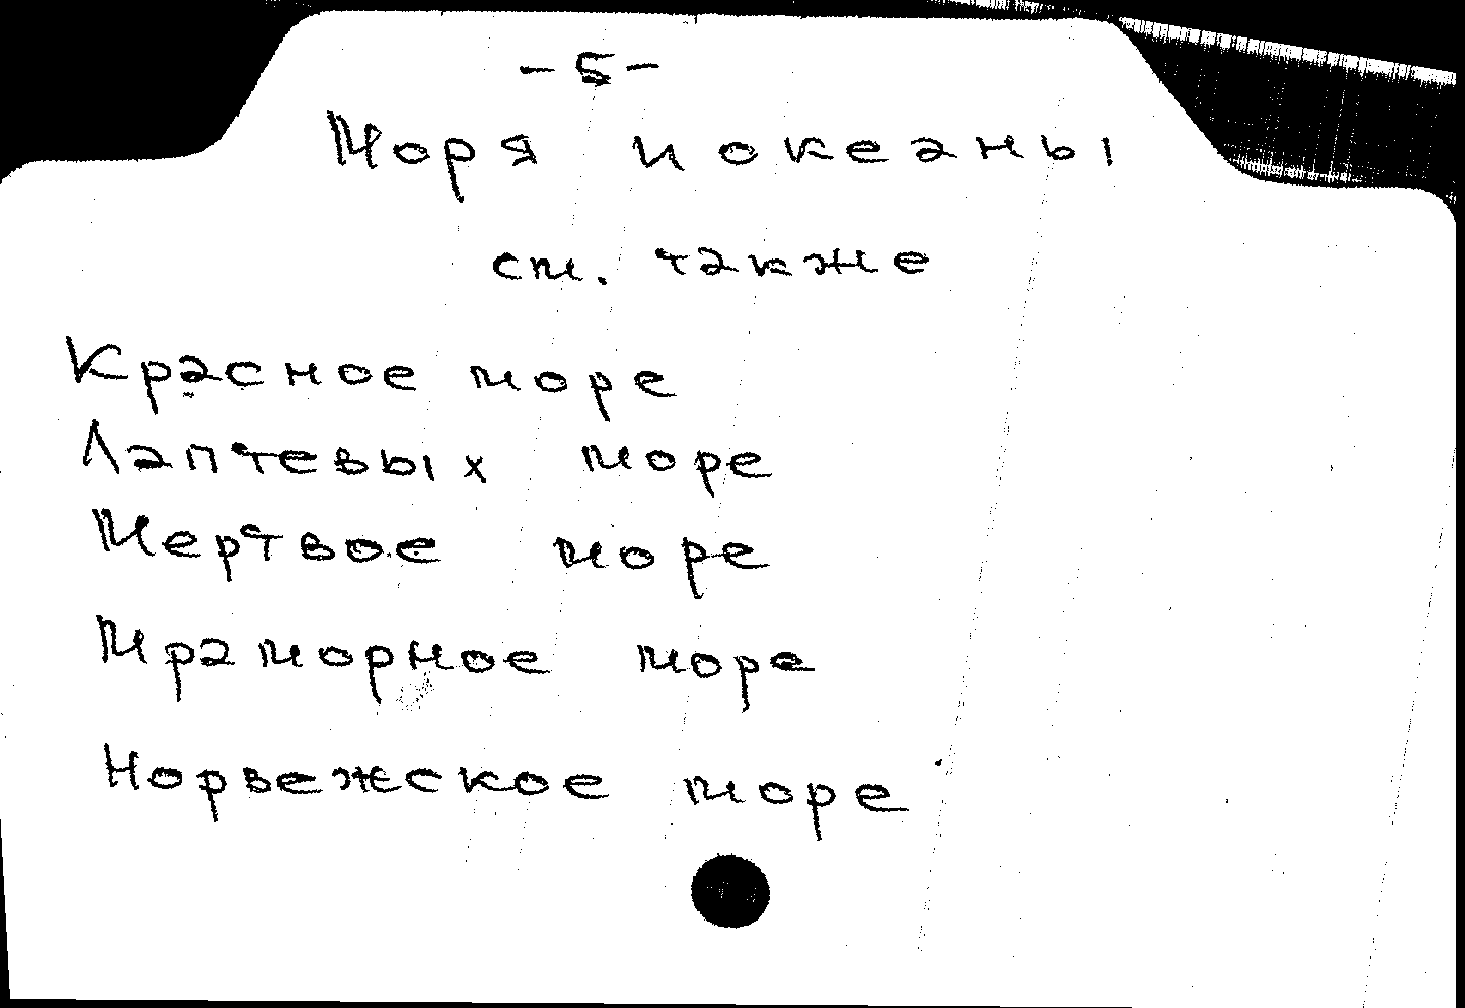 -5-
Моря и океаны
см. также
Красное море
Лаптевых море
Мертвое море
Мраморное море
Норвежское море